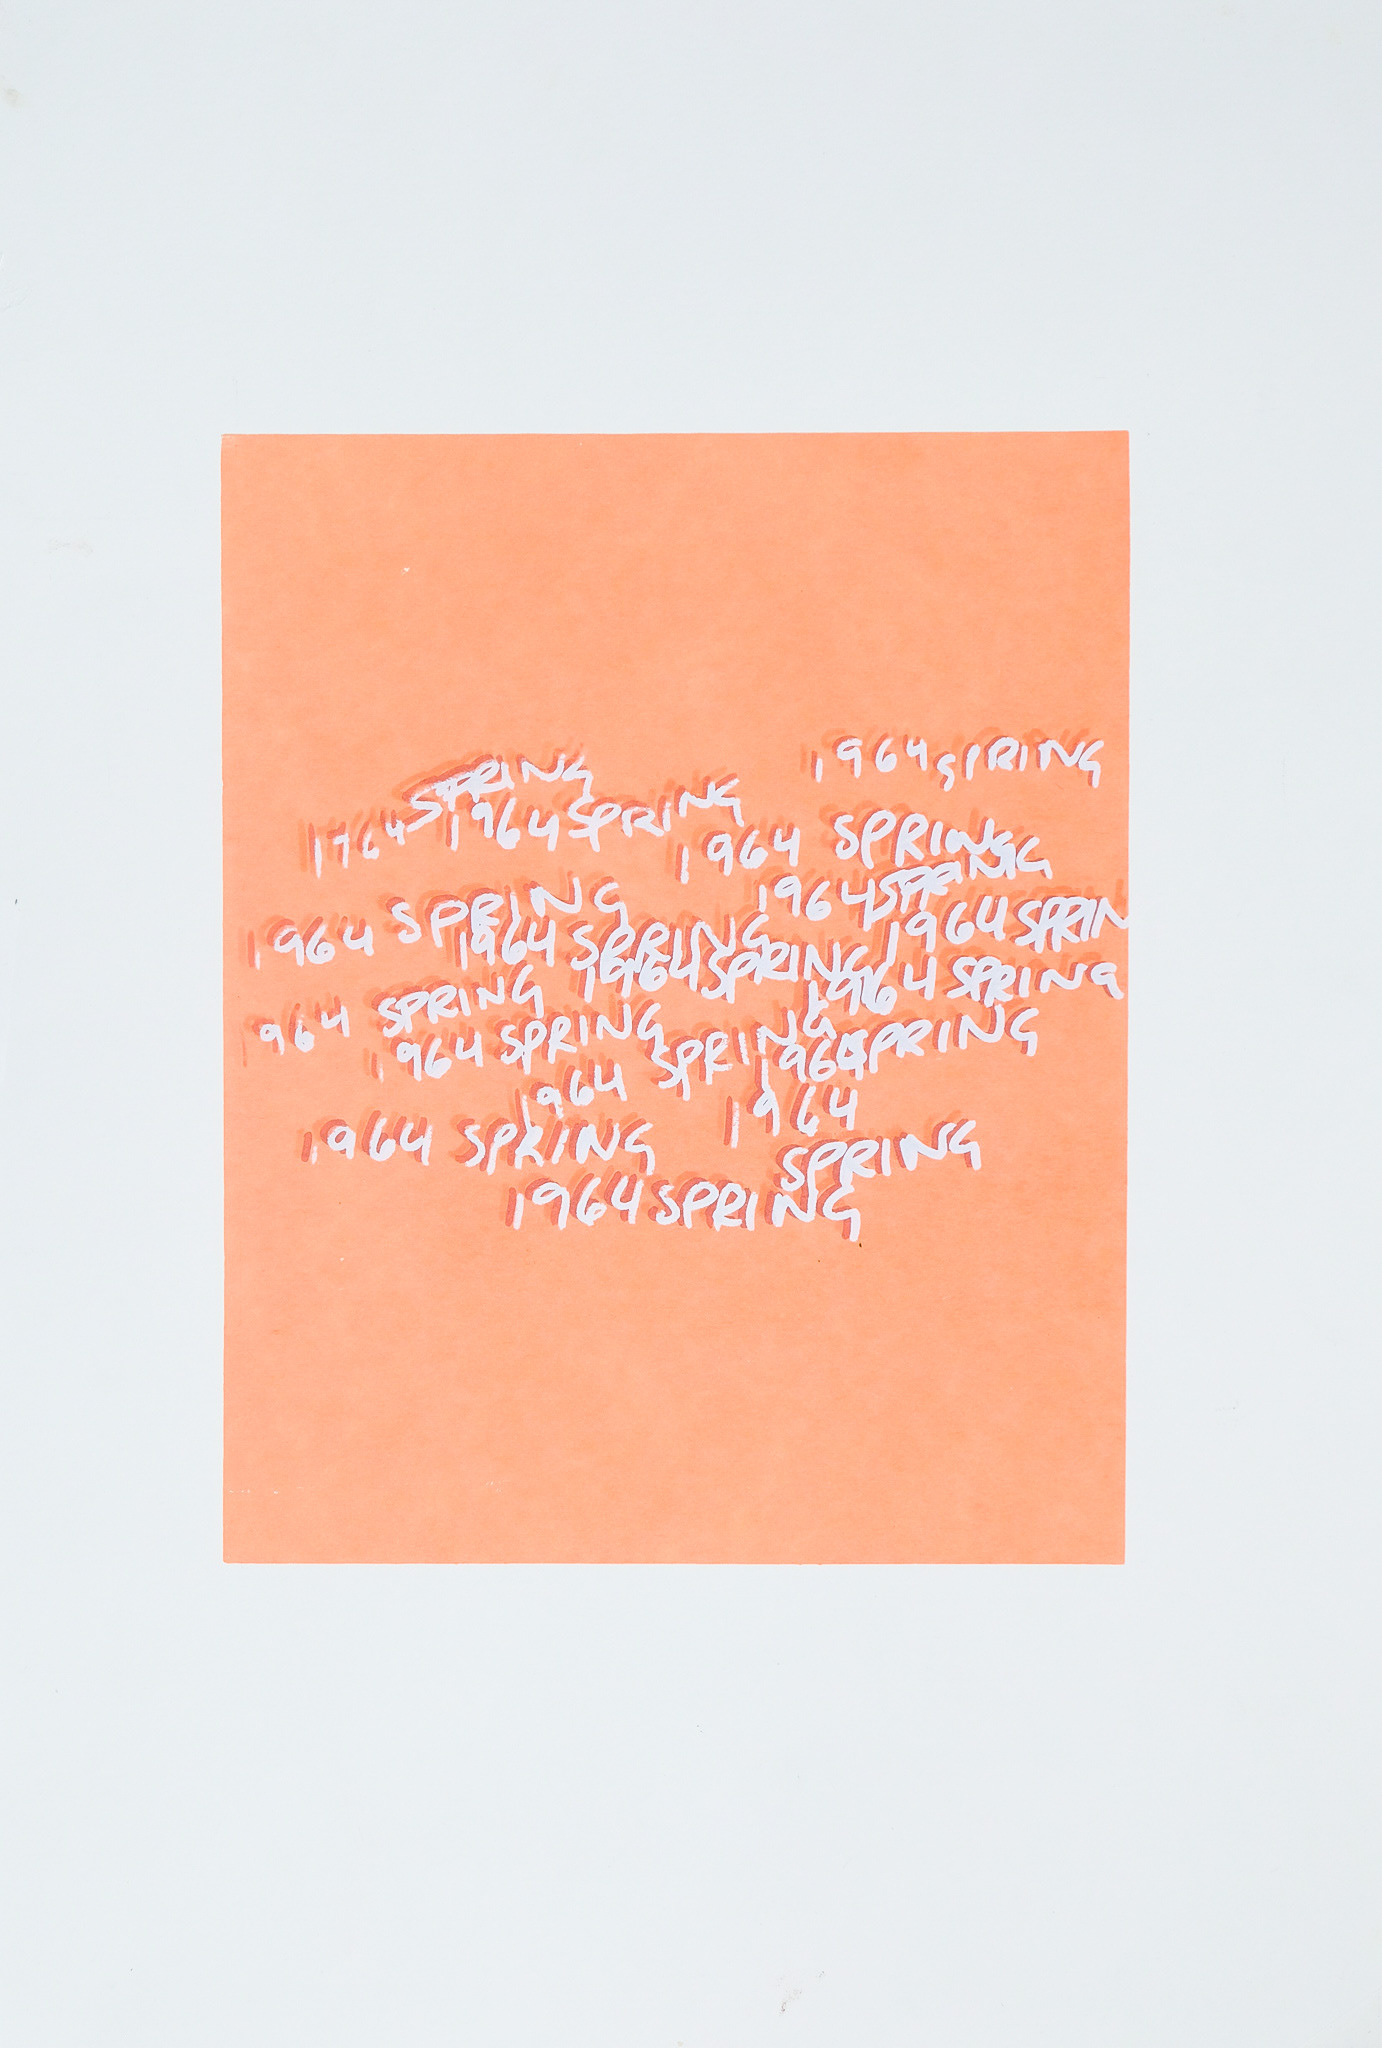 1964 SPRING
1764 SPRING
1964 SPRING
1964 SPRING
1964 SPRING
1964 SPRING
1964 SPRIN
1964 SPRING
1964 SPRING
1964 SPRING
1964 SPRING
1964 SPRING
1964 SPRING
1964 SPRING
1964 SPRING
1964
SPRING
1964 SPRING